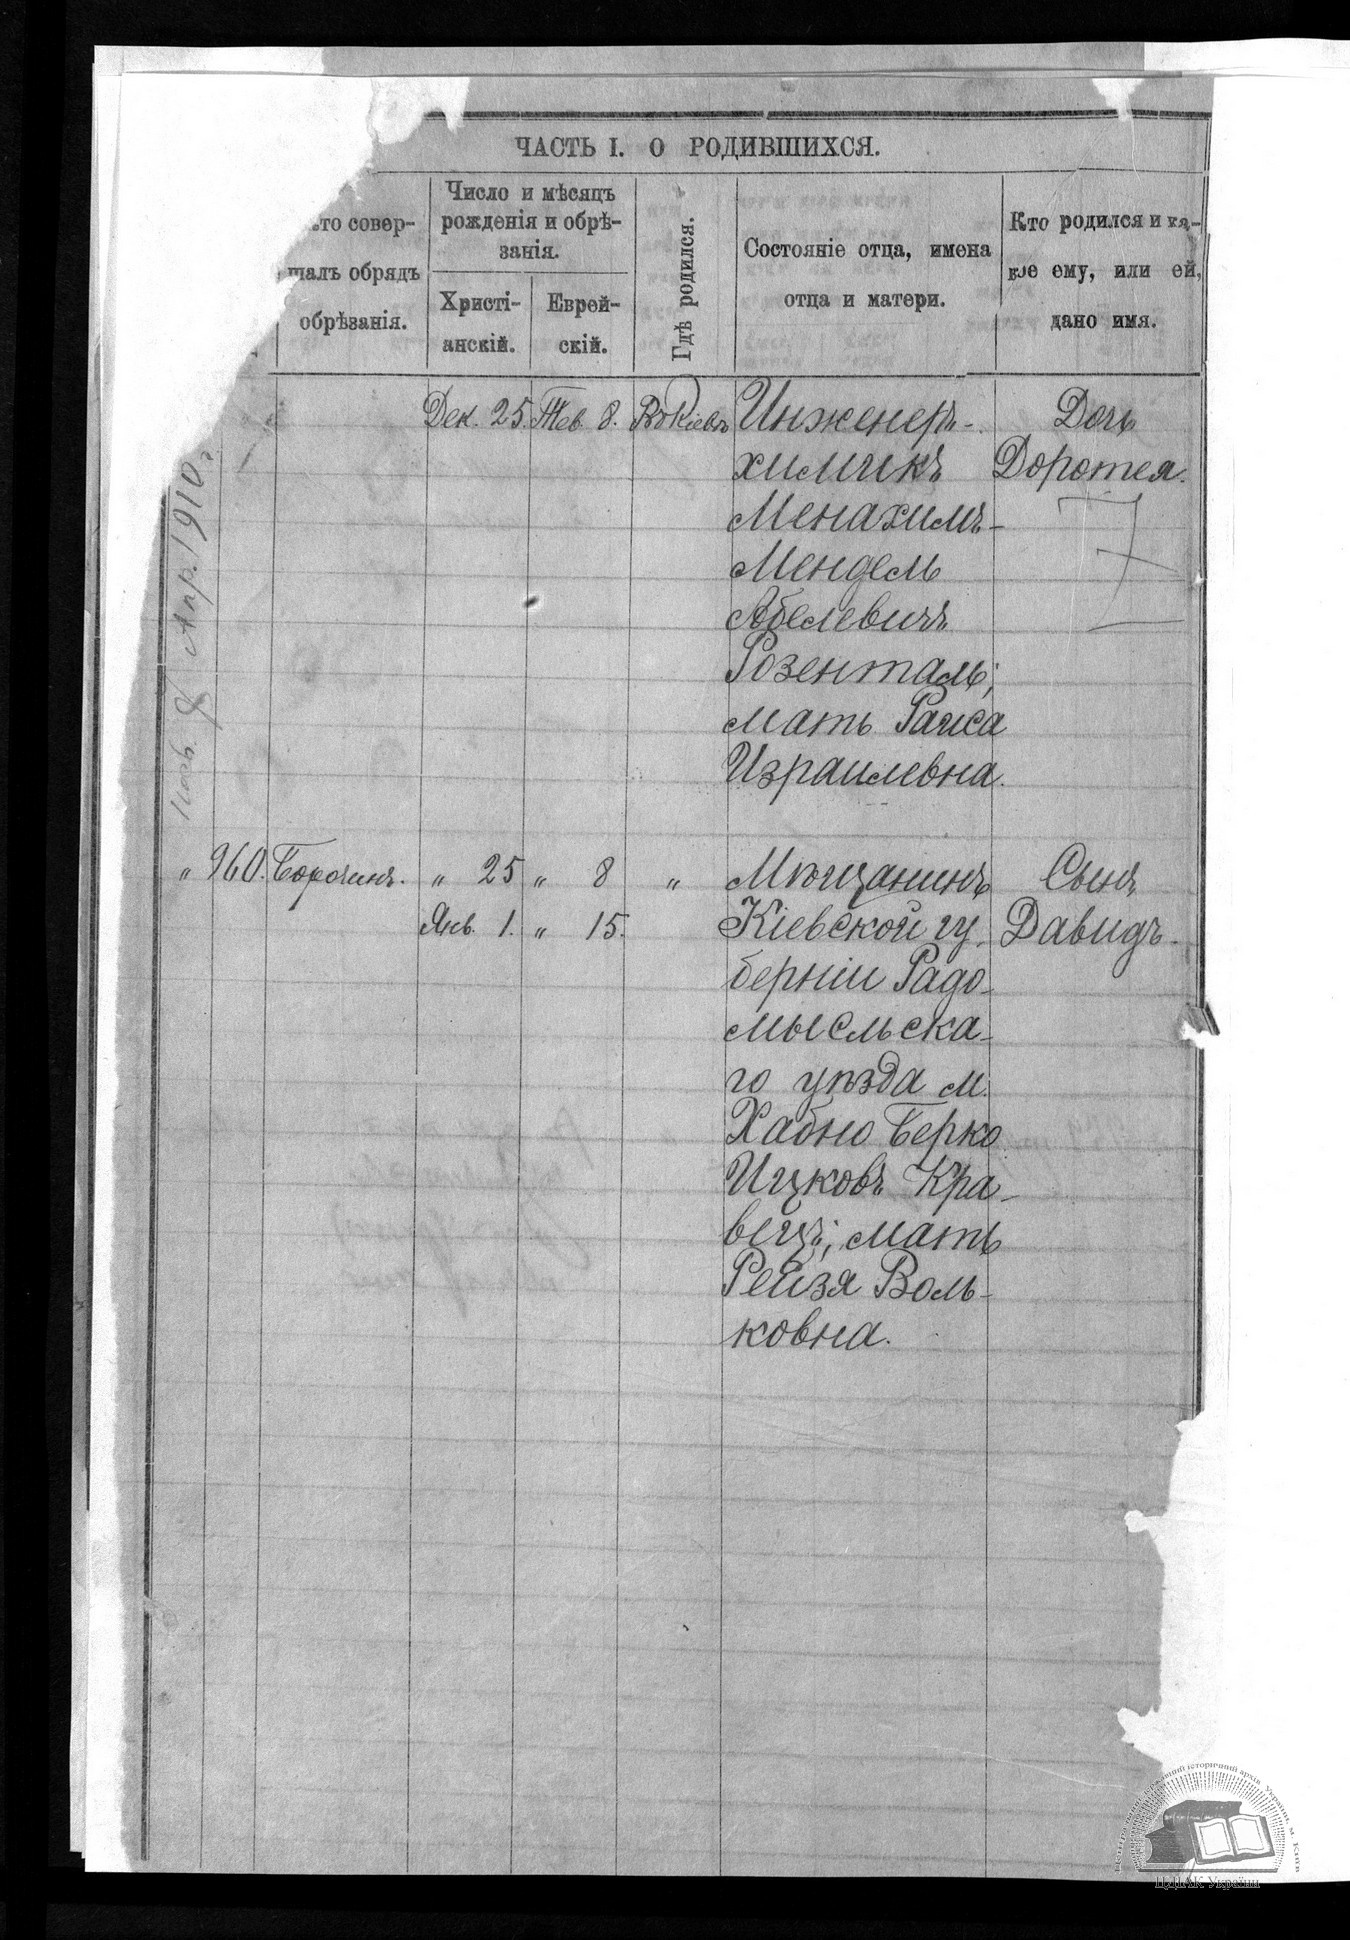 ЧАСТЬ I. О РОДИВШИХСЯ.
то совер-
шалъ обрядъ
обрѣзанія.
Число и мѣсяцъ
рожденія и обрѣ-
занія.
Христі-
анскій.
Еврей-
скій.
Гдѣ родился.
Состояніе отца, имена
отца и матери.
Кто родился и ка-
кое ему, или ей,
дано имя.
Апр. 1910 г.
Дек. 25. Тев. 8. Въ Кіевѣ
Инженеръ-
химикъ
Менахимъ-
Мендель
Абелевичъ
Розенталь;
мать Раиса
Израилевна.
Дочь
Доротея.
„ 960. Борочинъ. „ 25 „ 8 „
Янв. 1. „ 15.
Мѣщанинъ
Кіевской гу-
берніи Радо-
мысльска-
го уѣзда м.
Хабно Берко
Ицковъ Кра-
вецъ; мать
Рейзя Воль-
ковна.
Сынъ
Давидъ.
ЦДІАК України